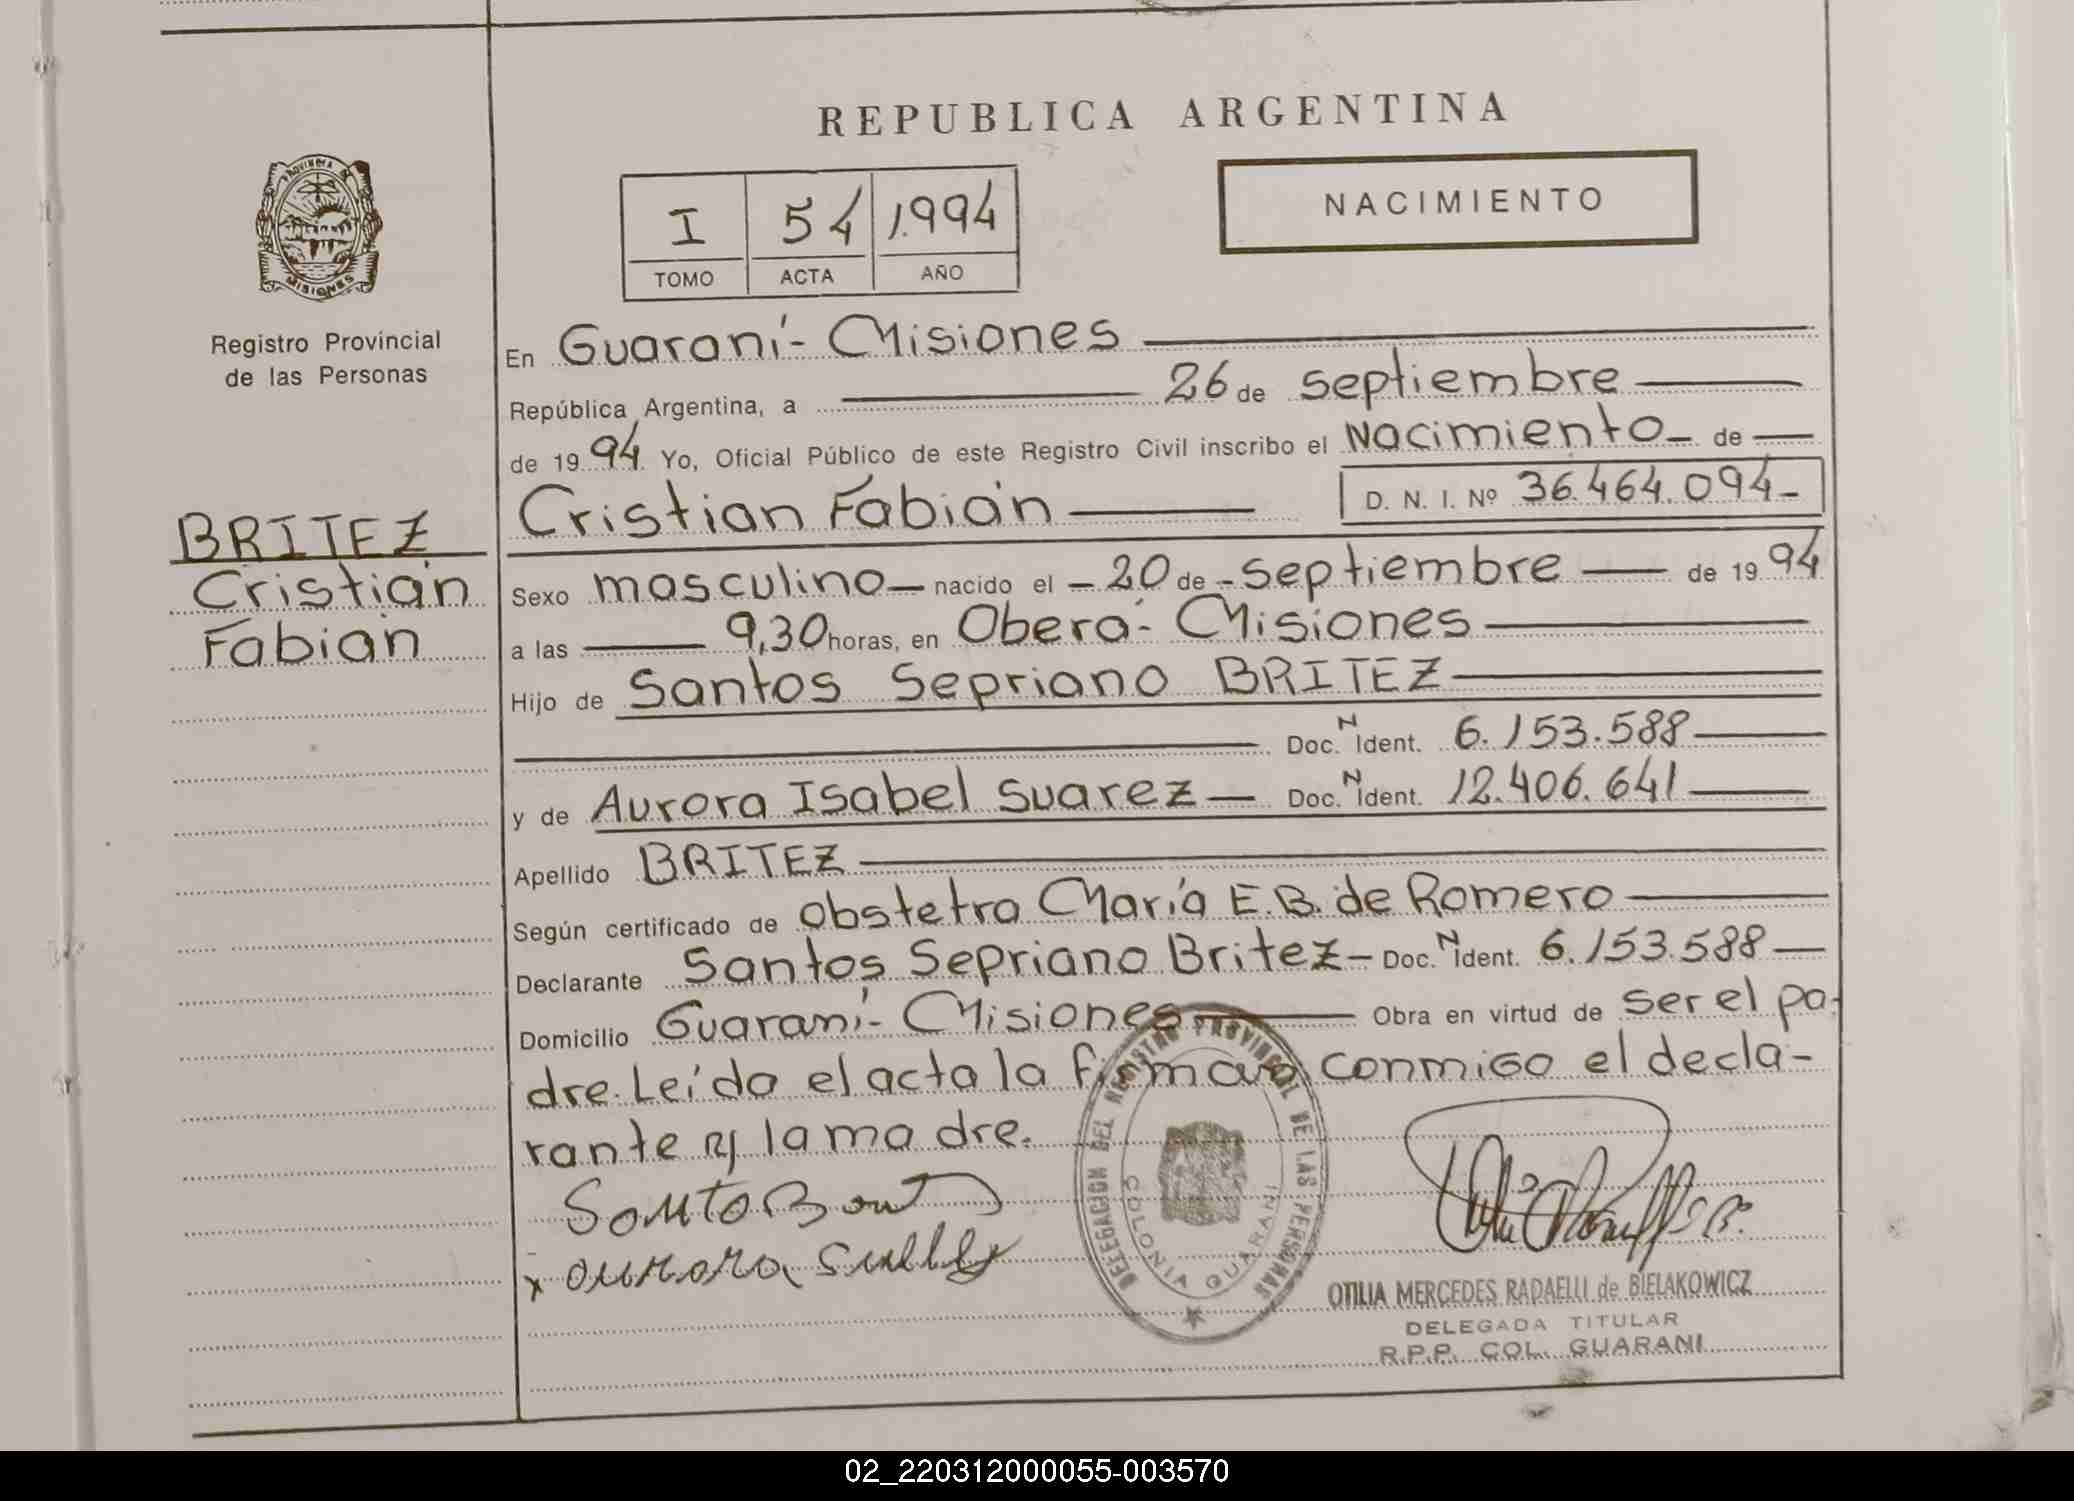 REPUBLICA ARGENTINA
PROVINCIA DE
MISIONES
Registro Provincial
de las Personas
I 54 1.994
TOMO ACTA AÑO
NACIMIENTO
BRITEZ
Cristián
Fabián
En Guaraní- Misiones
República Argentina, a 26 de septiembre
de 1994 Yo, Oficial Público de este Registro Civil inscribo el Nacimiento- de
Cristian Fabián D. N. I. Nº 36.464.094-
Sexo masculino- nacido el -20 de -septiembre de 1994
a las 9,30 horas, en Oberá- Misiones
Hijo de Santos Sepriano BRITEZ
Doc. N Ident. 6.153.588
y de Aurora Isabel Suarez- Doc. N Ident. 12.406.641
Apellido BRITEZ
Según certificado de obstetra María E.B. de Romero
Declarante Santos Sepriano Britez- Doc. N Ident. 6.153.588-
Domicilio Guaraní- Misiones Obra en virtud de ser el pa-
dre. Leída el acta la firman conmigo el decla-
rante y la madre.
DELEGACION DEL REGISTRO PROVINCIAL DE LAS PERSONAS
COLONIA GUARANI
OTILIA MERCEDES RADAELLI de BIELAKOWICZ
DELEGADA TITULAR
R.P.P. COL. GUARANI
02_220312000055-003570